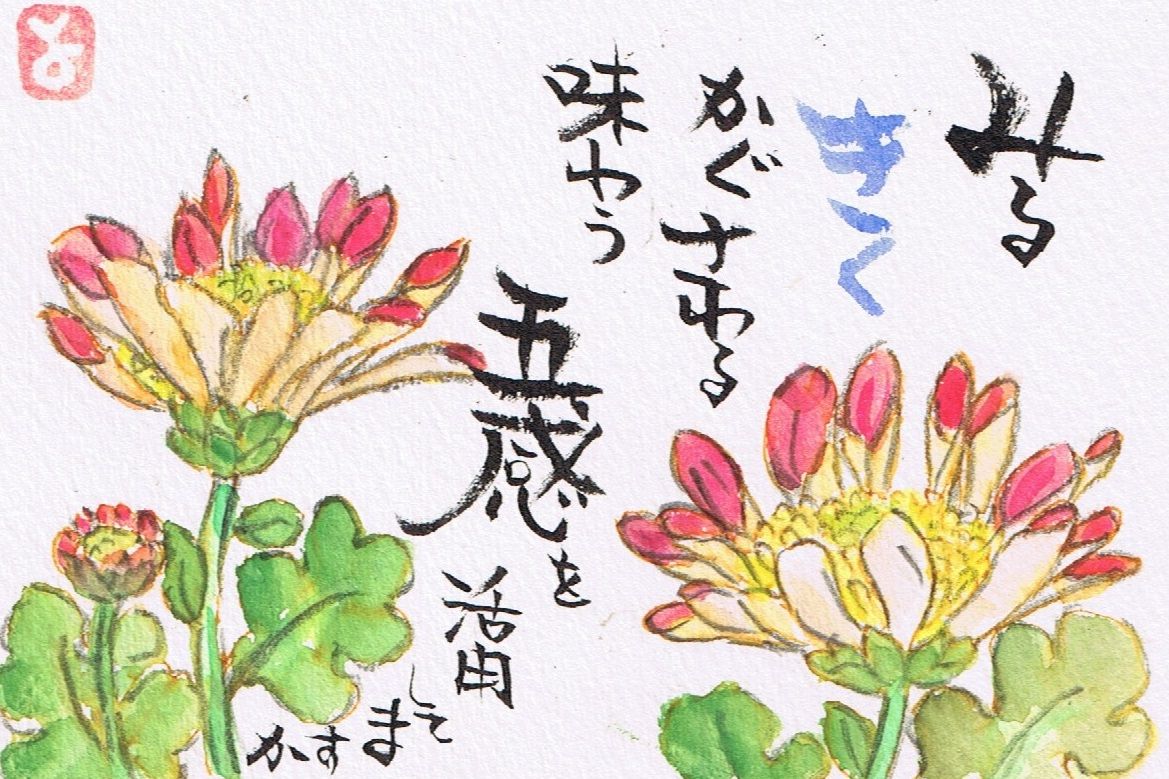 みる
きく
かぐさわる
味わう
五感を
活用
して
ますか